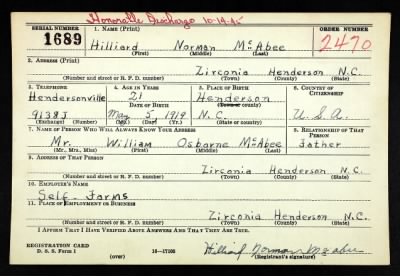 Honorable Discharge 10-19-45
SERIAL NUMBER 1. NAME (Print) ORDER NUMBER
1689 Hilliard Norman McAbee 2470
(First) (Middle) (Last)
2. ADDRESS (Print)
Zirconia Henderson N.C.
(Number and street or R. F. D. number) (Town) (County) (State)
3. TELEPHONE 4. AGE IN YEARS 5. PLACE OF BIRTH 6. COUNTRY OF CITIZENSHIP
Hendersonville 21 Henderson
DATE OF BIRTH (Town or county)
9138J May 5, 1919 N.C. U.S.A.
(Exchange) (Number) (Mo.) (Day) (Yr.) (State or country)
7. NAME OF PERSON WHO WILL ALWAYS KNOW YOUR ADDRESS 8. RELATIONSHIP OF THAT PERSON
Mr. William Osborne McAbee father
(Mr., Mrs., Miss) (First) (Middle) (Last)
9. ADDRESS OF THAT PERSON
Zirconia Henderson N.C.
(Number and street or R. F. D. number) (Town) (County) (State)
10. EMPLOYER'S NAME
Self - Farms
11. PLACE OF EMPLOYMENT OR BUSINESS
Zirconia Henderson N.C.
(Number and street or R. F. D. number) (Town) (County) (State)
I AFFIRM THAT I HAVE VERIFIED ABOVE ANSWERS AND THAT THEY ARE TRUE.
REGISTRATION CARD
D. S. S. Form 1 (over) 16-17105 Hilliard Norman McAbee
(Registrant's signature)